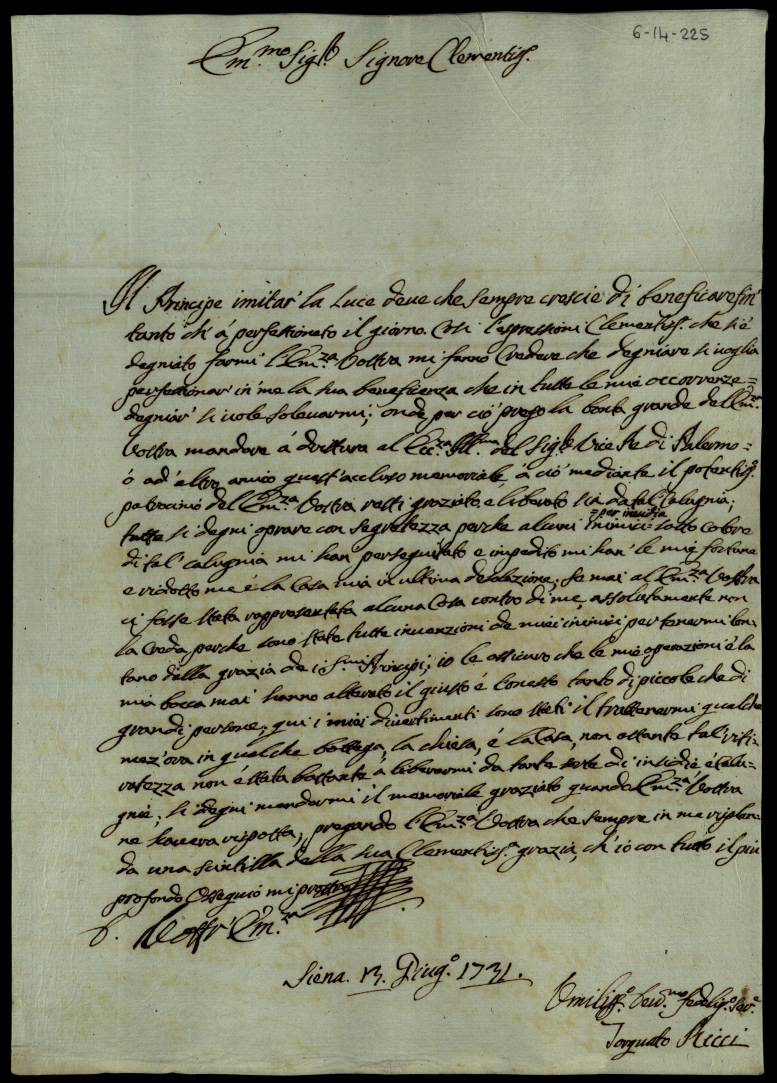 6-14-225
Em.mo Sig.re Signore Clementiss.
Il Principe imitar la Luce deve che sempre crescie di beneficare sin
tanto ch' á perfettionato il giorno. Così l'espressioni Clementiss.e che si é
degniato farmi l'Em.za Vostra mi fanno Credere che degniare si voglia
perfettionar in me la sua beneficienza che in tutte le mie occorrenze=
degniar si vole solevarmi; onde per ció prego la bontá grande dell Em.za
Vostra mandare á drittura al Ecc.za Ill.ma del Sig.re Vice Re di Palermo=
ó ad' altro amico quest' accluso memoriale, á ció mediante il potentiss.o
patrocinio dell Em.za Vostra resti graziato, e liberato sia da tal Calugnia;
tutto si degni oprare con segretezza perche alcuni inimici =per invidia= sotto Colore
di tal' calugnia mi han perseguitato e impedito mi han' le mie fortune
e ridotto me é la Casa mia in ultima desolazione; Se mai al Em.za Vostra
ci fosse stata rappresentata alcuna Cosa contro di me, assolutamente non
la Creda, perche sono state tutte invenzioni de miei inimici per tenermi lon=
tano dalla grazia de i S.mi Principi; io le assicuro che le mie operazioni é la
mia bocca mai hanno alterato il giusto é l'onesto tanto di piccole che di
grandi persone; qui i miei divertimenti sono stati il trattenermi qualche
mez'ora in qualche bottega, la chiesa, é la Casa, non ostante tal' riti=
ratezza non é stata bastante á liberarmi da tante sorte di insidie é calu=
gnie; si degni mandarmi il memoriale graziato quando l'Em.za Vostra
ne haverá risposta; pregando l'Em.za Vostra che sempre in me risplen=
da una scintilla della sua Clementiss.a grazia, ch' io con tutto il piu
profondo Ossequio mi prostro
D. Vostr' Em.za
Siena. 13. Giug.o 1731.
Umiliss.o Dev.mo fedeliss.o Ser.e
Torquato Ricci